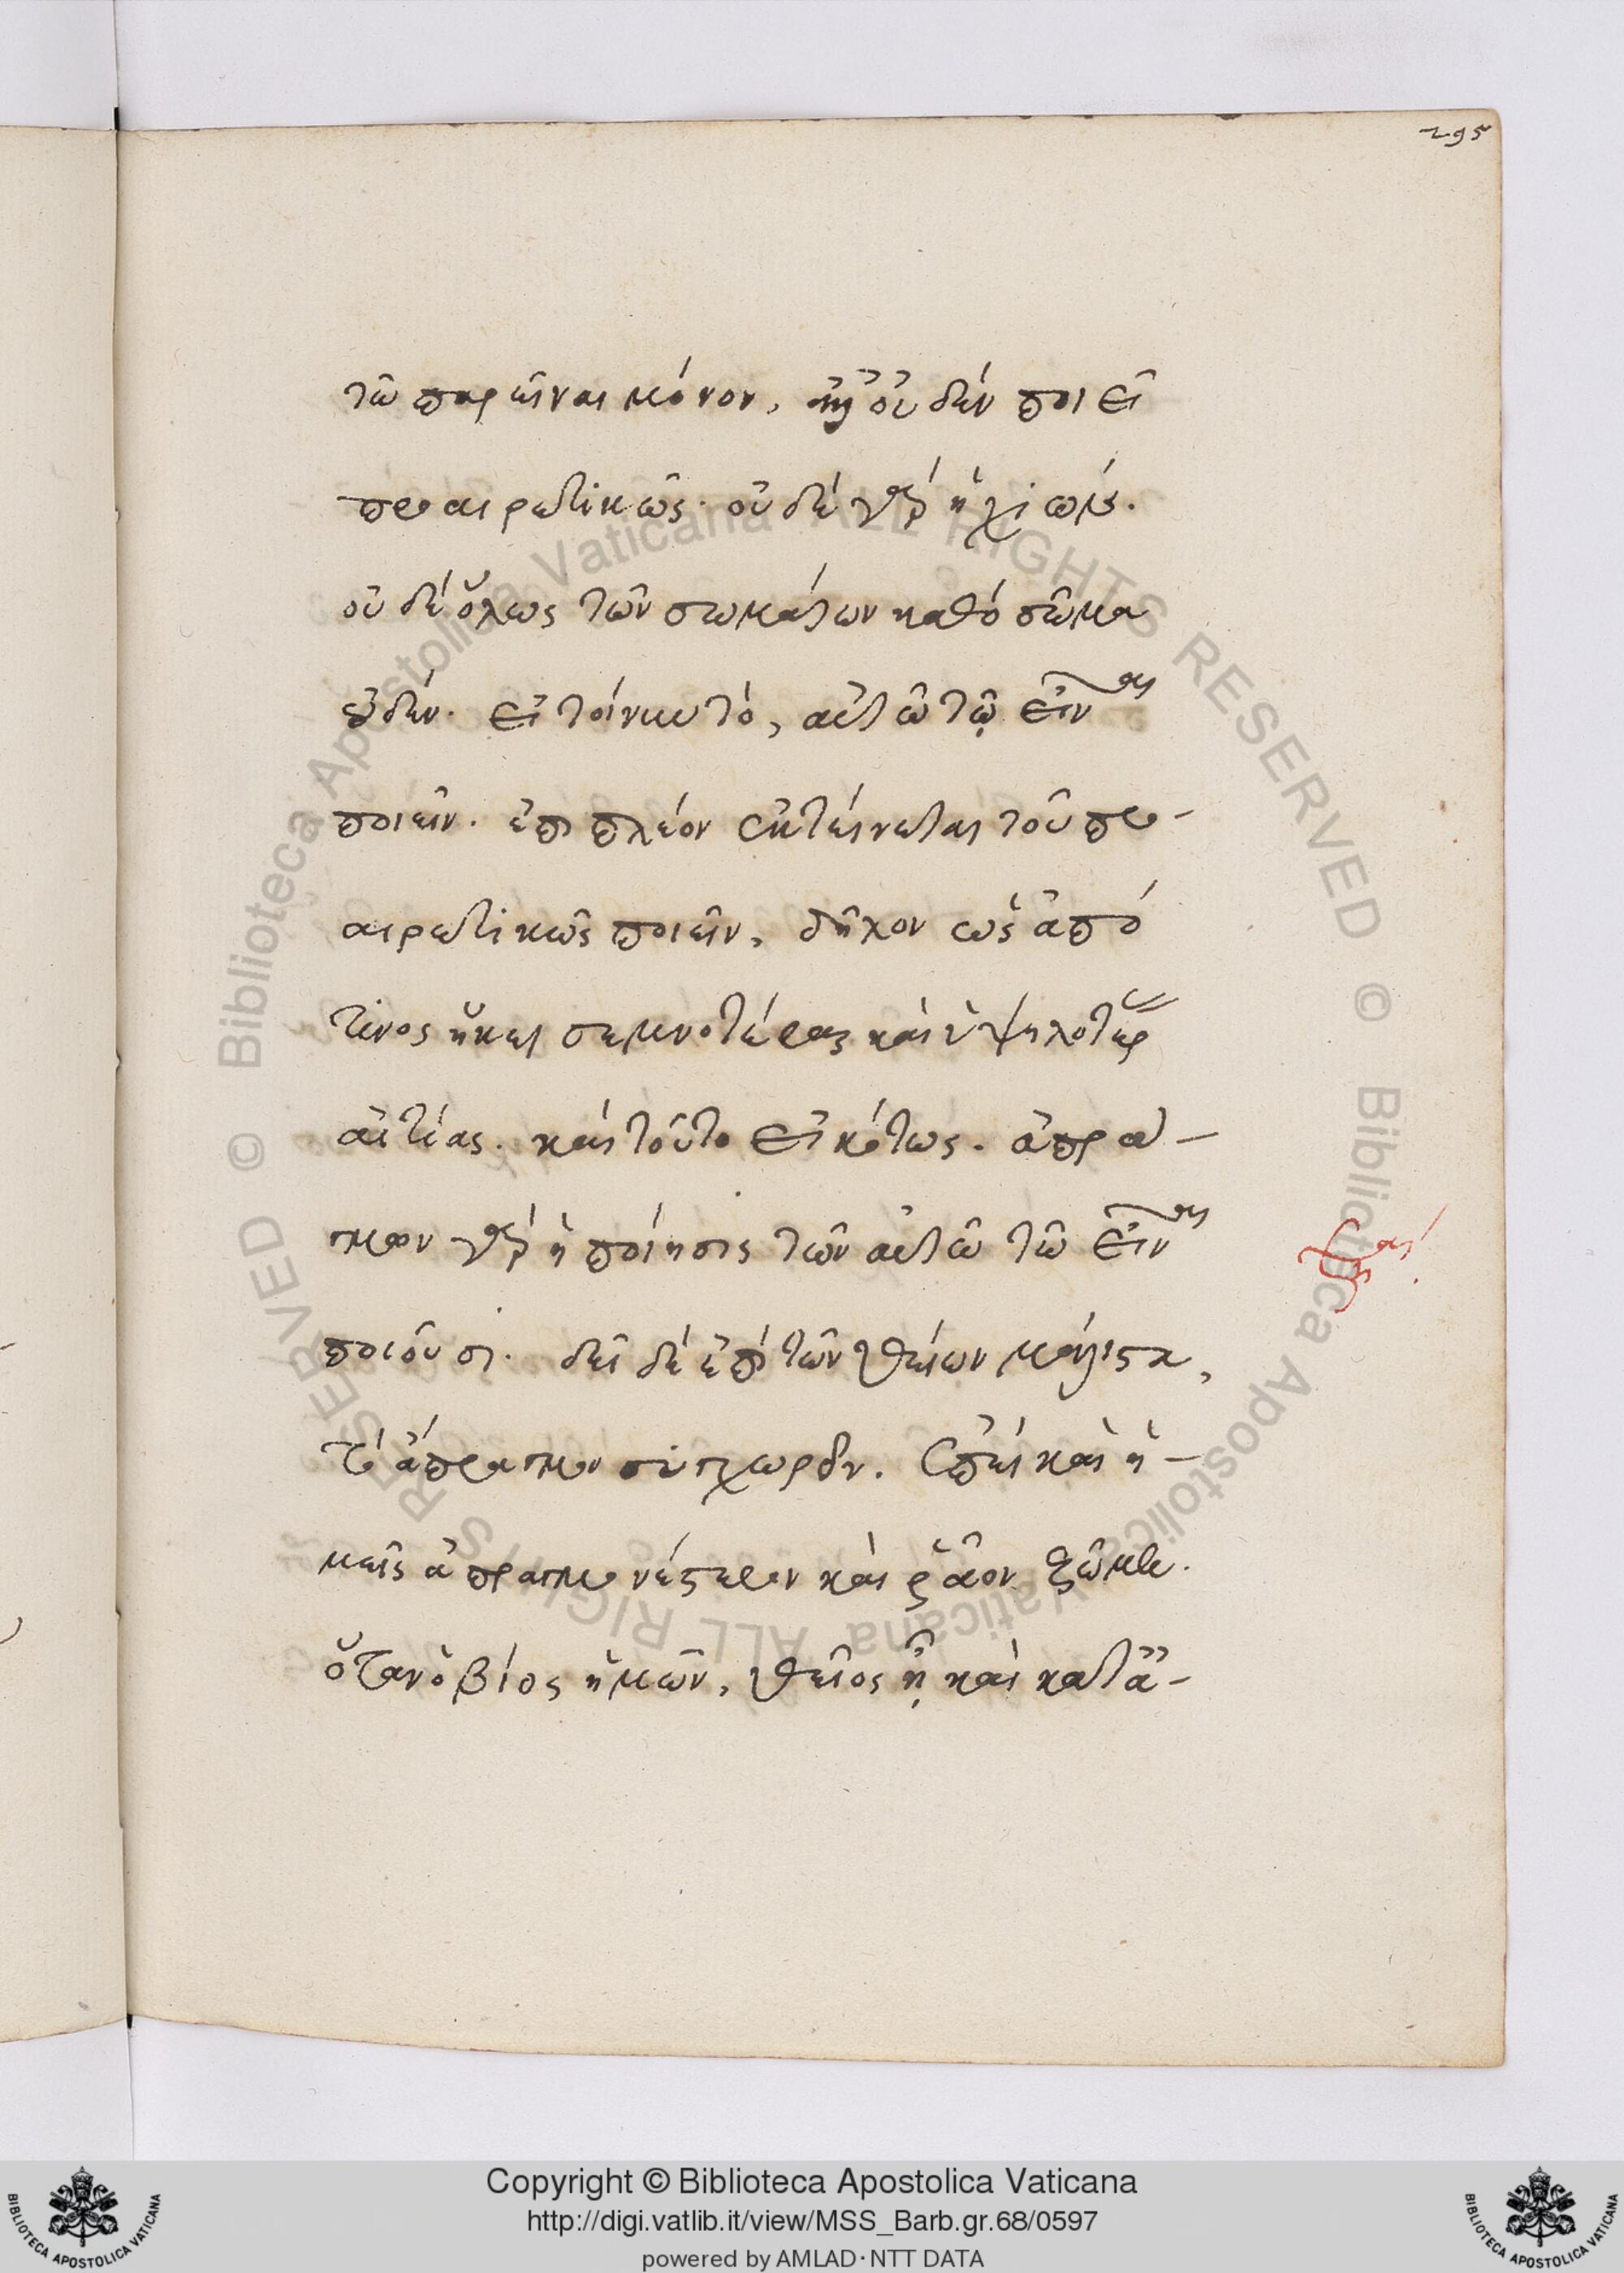 295
τῶ παρεῖναι μόνον, καὶ οὐδὲν ποιεῖ
προαιρετικῶς· οὐδὲ γὰρ ἡ χιών.
οὐδὲ ὅλως τῶν σωμάτων καθὸ σῶμα
οὐδέν. εἰ τοίνυν τὸ, αὐτῶ τῷ εἶναι
ποιεῖν. ἐπὶ πλέον ἐκτείνεται τοῦ προ-
αιρετικῶς ποιεῖν, δῆλον ὡς ἀπό
τινος ἥκει σεμνοτέρας καὶ ὑψηλοτέρας
αἰτίας. καὶ τοῦτο εἰκότως. ἀπρά-
γμων γὰρ ἡ ποίησις τῶν αὐτῶ τῶ εἶναι
ποιοῦσι. δεῖ δὲ ἐπὶ τῶν θείων μάλιστα,
τὸ ἄπραγμον συγχωρεῖν. ἐπεὶ καὶ ἡ-
μεῖς ἀπραγμονέστερον καὶ ῥᾶον ζῶμεν.
ὅταν ὁ βίος ἡμῶν, θεῖος ᾖ καὶ κατὰ-
Copyright © Biblioteca Apostolica Vaticana
http://digi.vatlib.it/view/MSS_Barb.gr.68/0597
powered by AMLAD·NTT DATA
BIBLIOTECA APOSTOLICA VATICANA
BIBLIOTECA APOSTOLICA VATICANA
© Biblioteca Apostolica Vaticana ALL RIGHTS RESERVED © Biblioteca Apostolica Vaticana ALL RIGHTS RESERVED